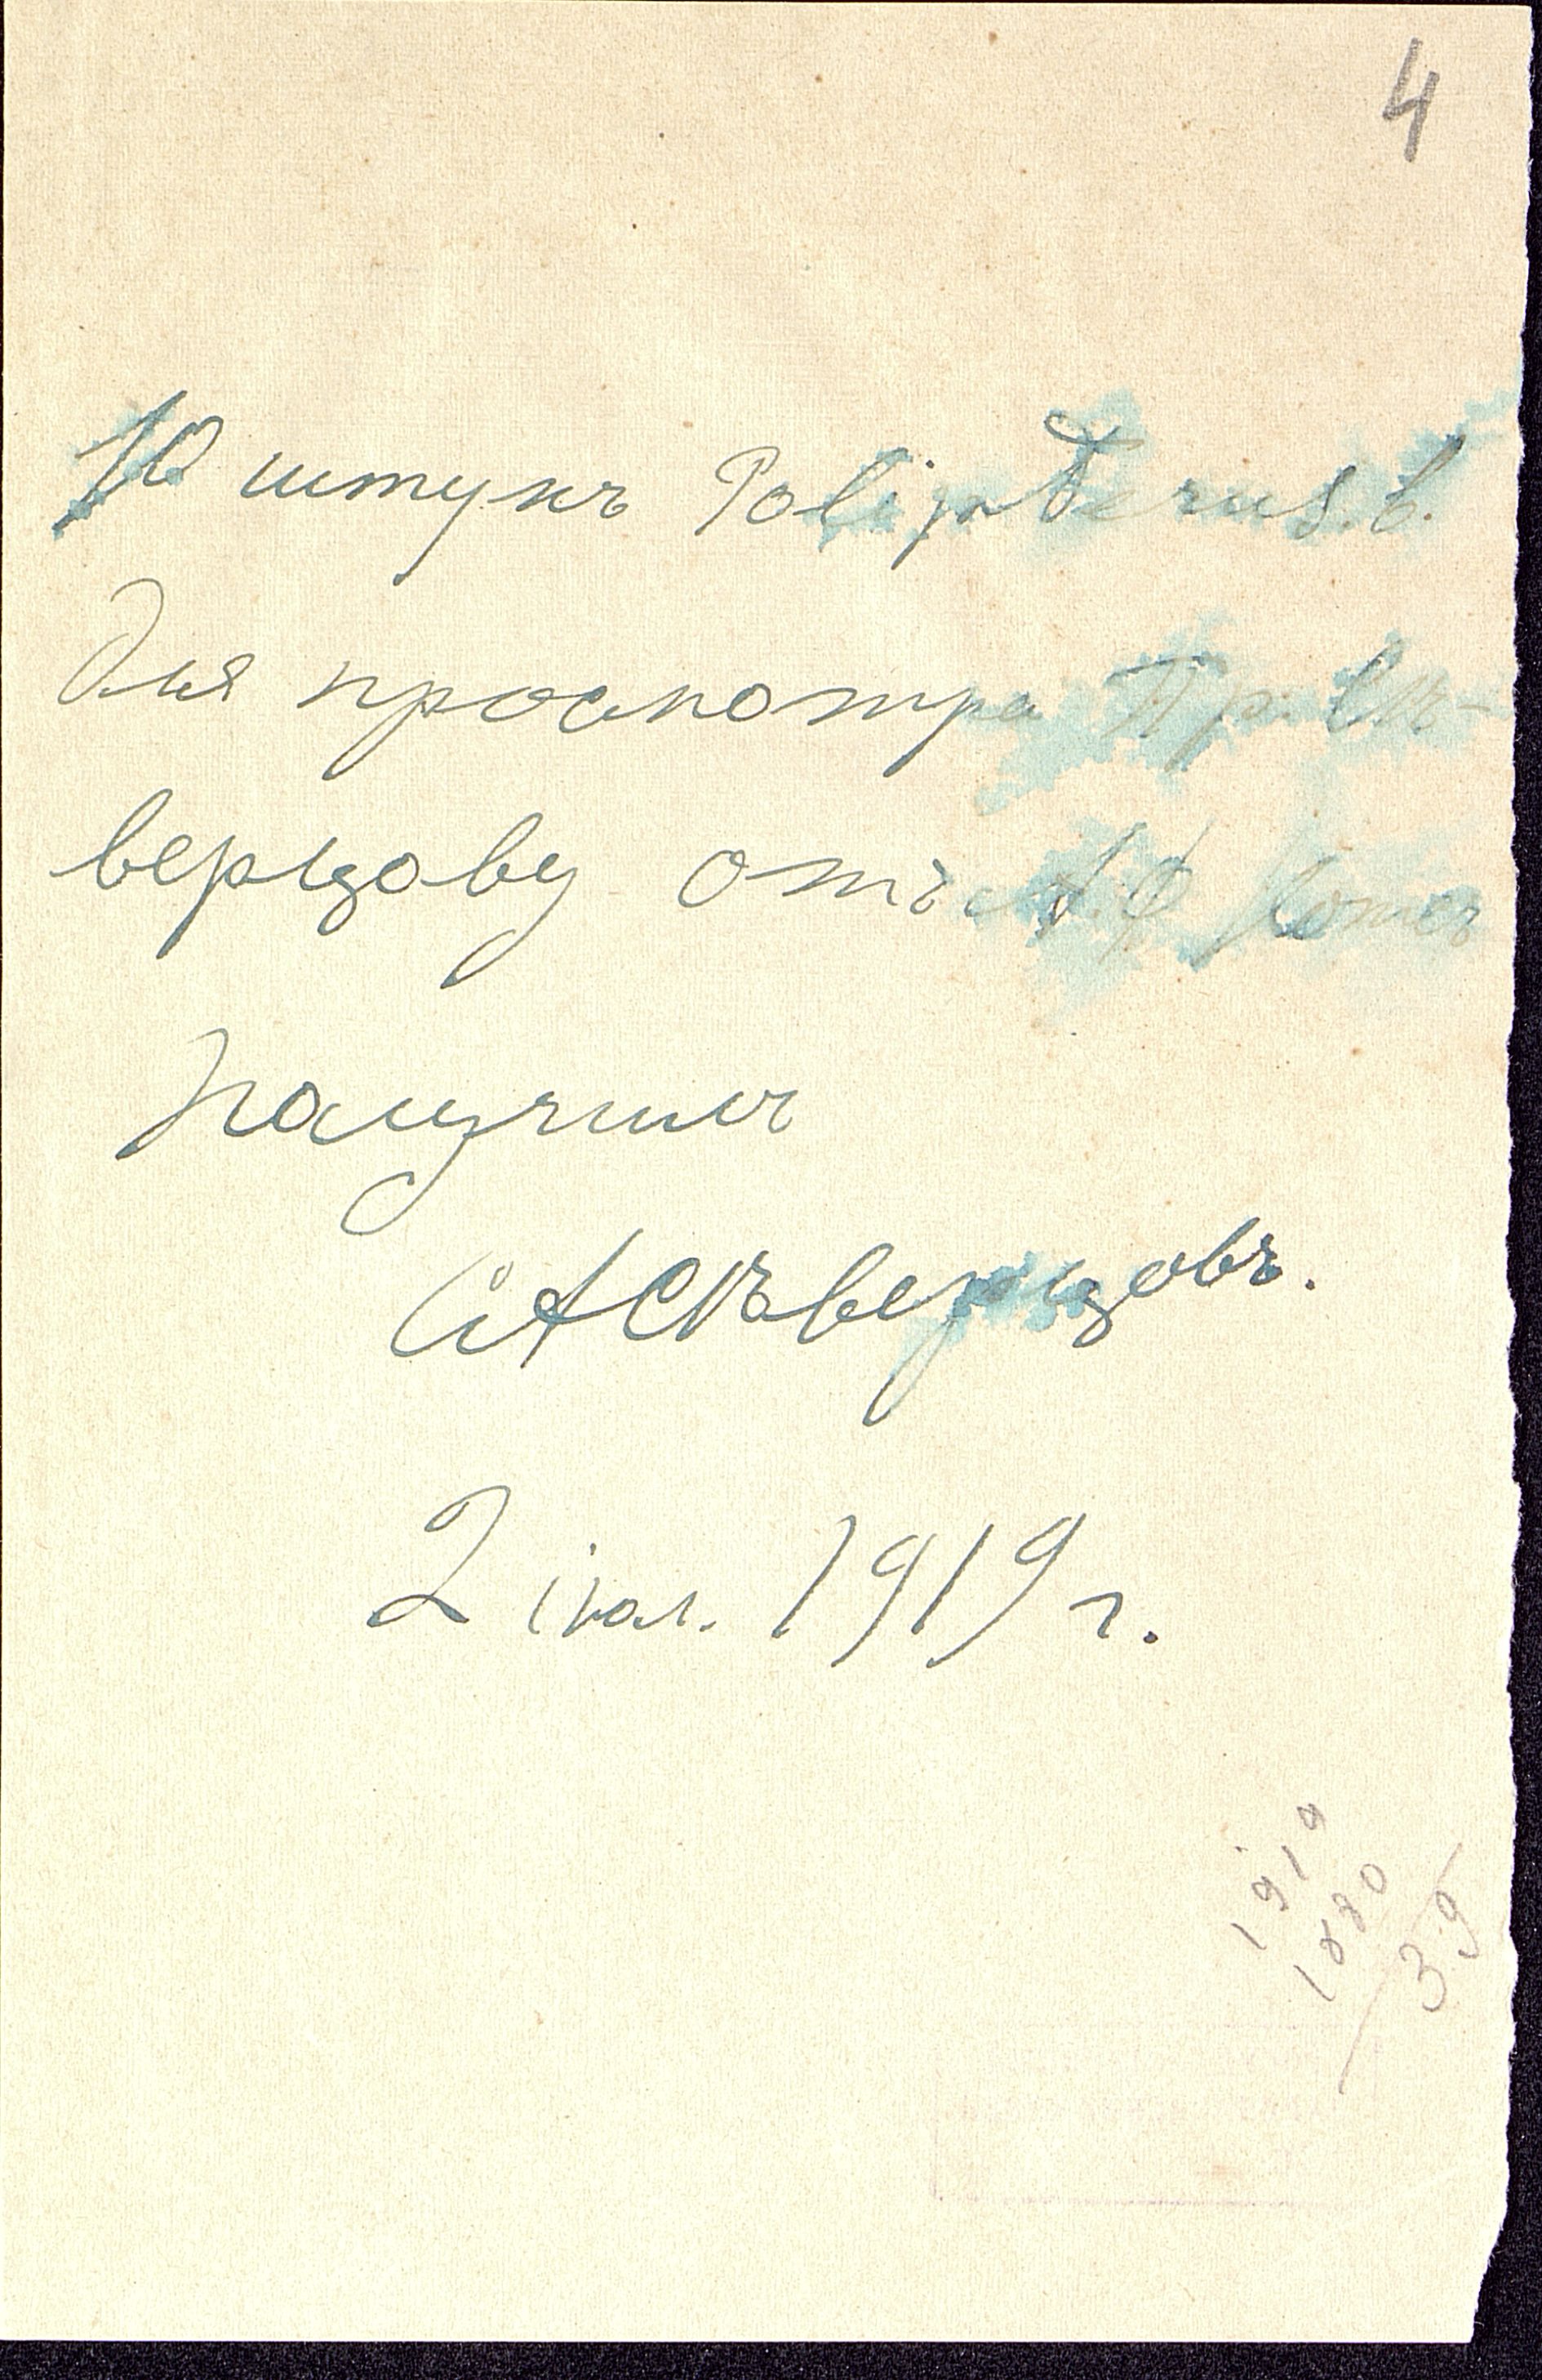 4
10 штукъ Polipterus. b.
для просмотра Пр. Сѣ-
верцову отъ А. Ф. Котсъ
Получилъ
А Сѣверцовъ.
2 іюл. 1919 г.
1919
1880
39